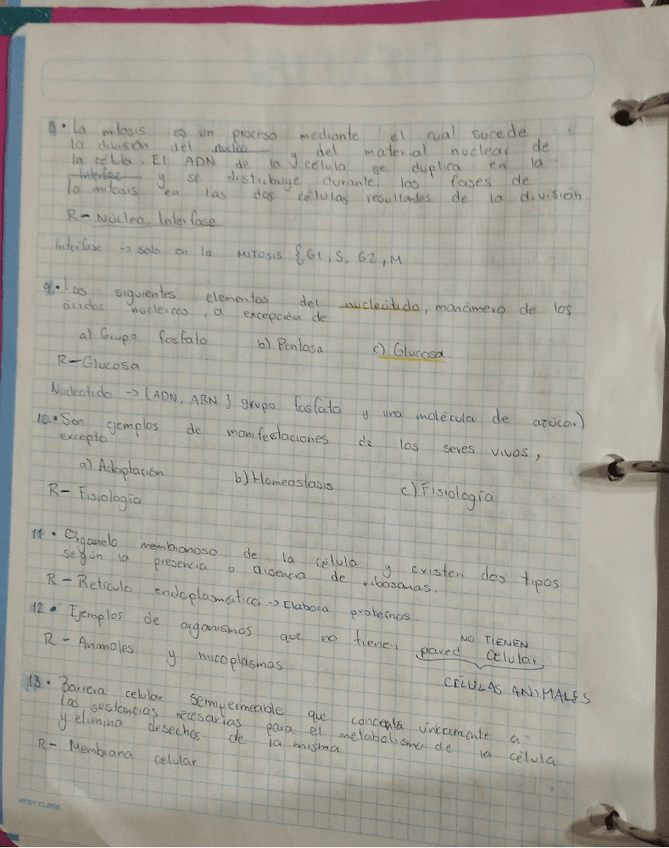 8• La mitosis es un proceso mediante el cual sucede
la división del nucleo y del material nuclear de
la célula. El ADN de la célula se duplica en la
Interfase y se distribuye durante las fases de
la mitosis en las dos células resultantes de la división
R- Núcleo, Interfase
Interfase -> solo en la MITOSIS {G1, S, G2, M
9• Las siguientes elementos del nucleótido, monómero de los
ácidos nucleicos, a excepción de
a) Grupo fosfato b) Pentosa c) Glucosa.
R-Glucosa
Nucleótido -> (ADN, ARN } grupo fosfato y una molécula de azúcar)
10• Son ejemplos de manifestaciones de los seres vivos,
excepto
a) Adaptación b) Homeostasis c) Fisiología
R- Fisiología
11• Organelo membranoso de la célula y existen dos tipos
según la presencia o ausencia de ribosomas.
R- Retículo endoplasmático -> Elabora proteínas
12• Ejemplos de organismos que no tienen pared celular
R- Animales y micoplasmas
NO TIENEN
CÉLULAS ANIMALES
13• Barrera celular semipermeable que concenta unicamente a
las sustancias necesarias para el metabolismo de la célula
y elimina desechos de la misma
R- Membrana celular